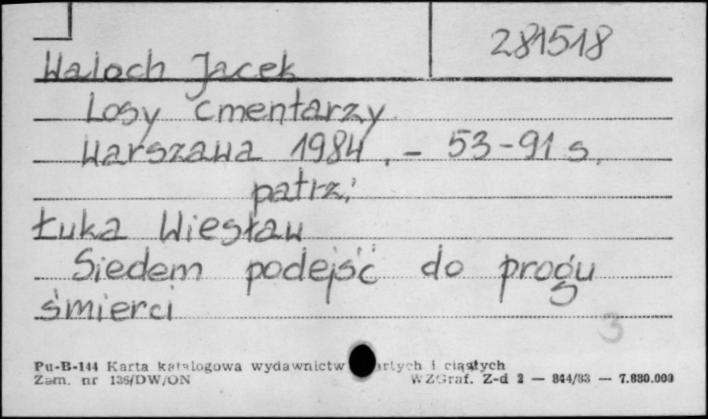 281518
Waloch Jacek
Losy cmentarzy
Warszawa 1984. - 53-91 s.
patrz:
Łuka Wiesław
Siedem podejść do progu
śmierci
3
Pu-B-144 Karta katalogowa wydawnictw i ciągłych
Zam. nr 136/DW/ON WZGraf. Z-d 2 — 844/83 — 7.880.000